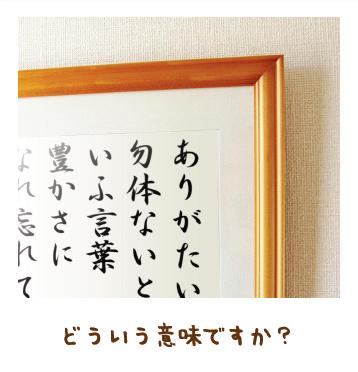 ありがたい
勿体ないと
いふ言葉
豊かさに
なれ忘れて
どういう意味ですか？